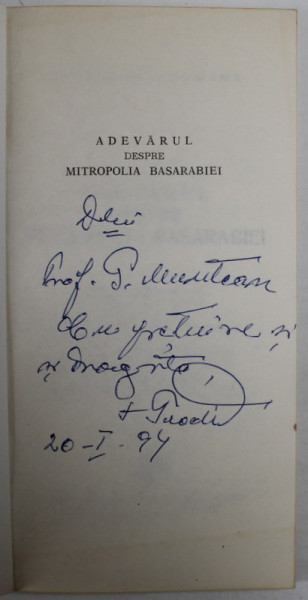 ADEVĂRUL
DESPRE
MITROPOLIA BASARABIEI
Dlui
Prof. G. Muntean
Cu prețuire și
dragoste
20-I-94